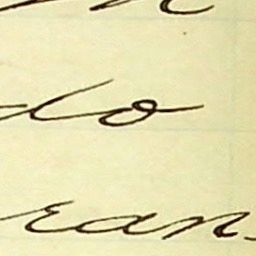 do
ran-